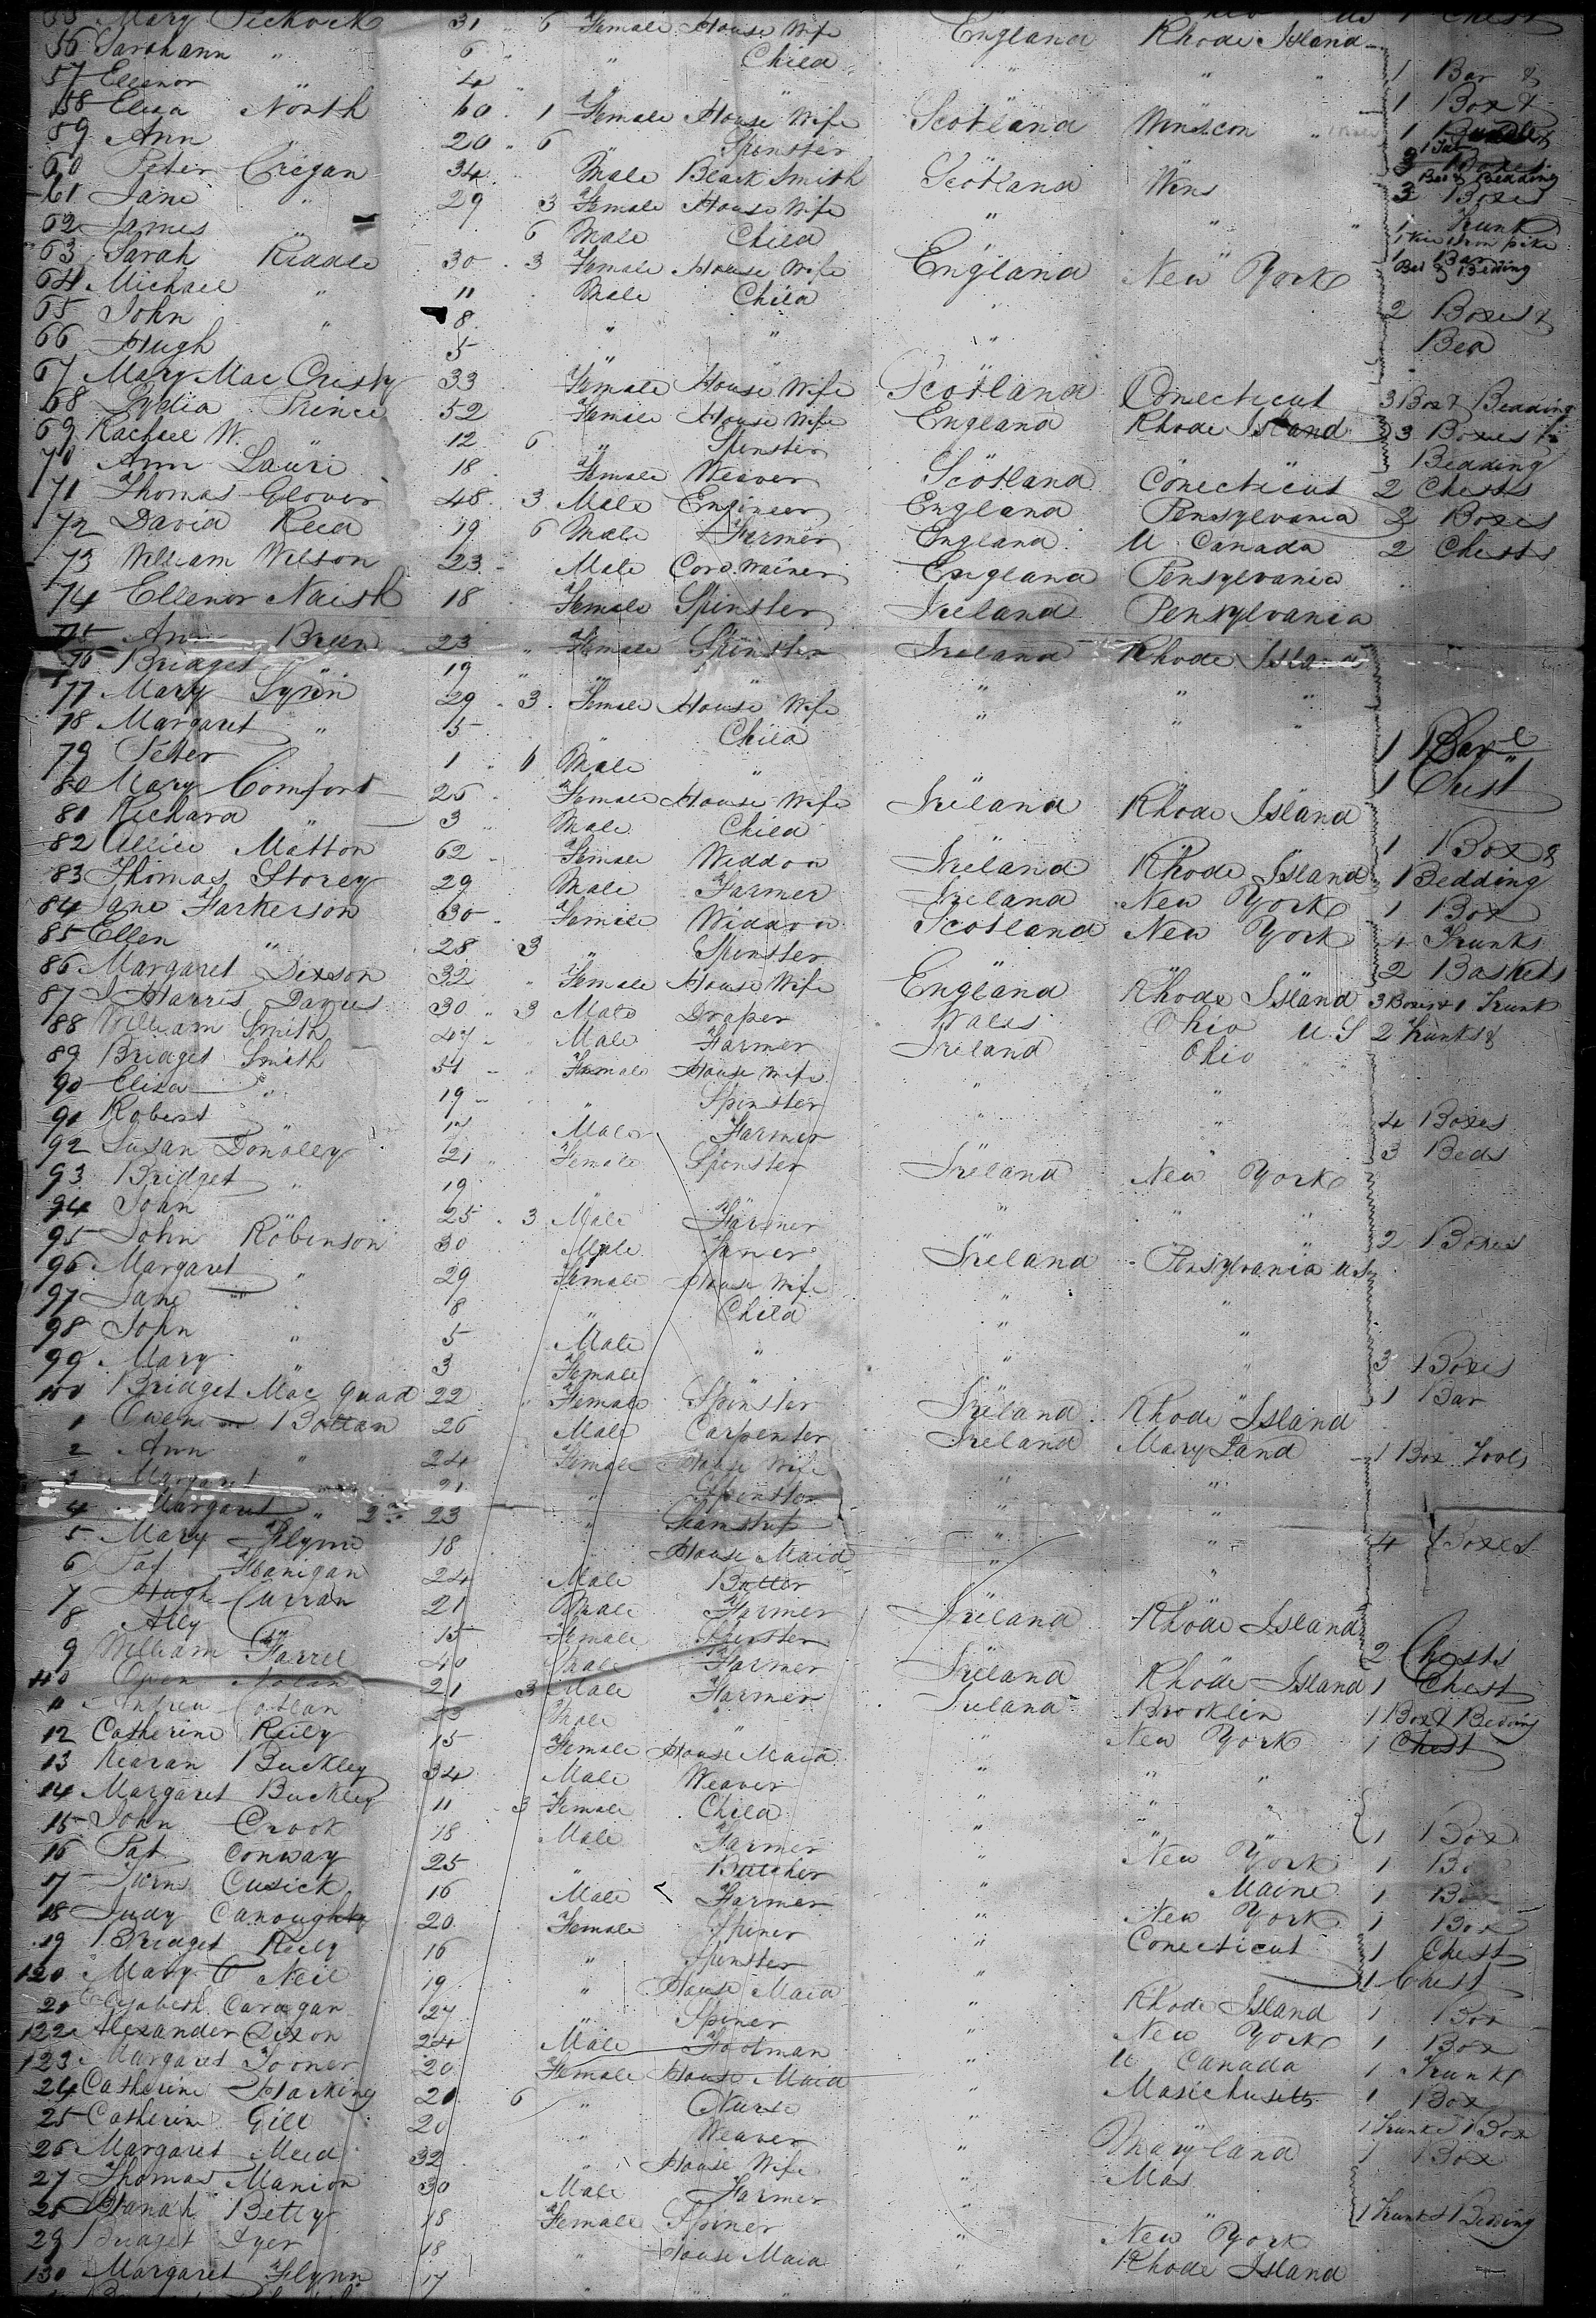 55 Mary Peckock 31 6 Female House Wife England Rhode Island 1 Chest
56 Sarahann " 6 " Child " "
57 Ellenor " 4 " " " " 1 Bar &
58 Eliza North 60 1 Female House Wife Scotland 1 Box &
59 Ann " 20 6 Spinster 1
60 Peter Crigan 34 Male Black Smith Scotland Wins 3 Boxes
61 Jane " 29 3 Female House Wife " " Bed & Bedding 3 Boxes
62 James " 6 Male Child " " 1 Trunk
63 Sarah Riddle 30 3 Female House Wife England New York 1 Bar
64 Michael " 11 Male Child " Bed & Bedding
65 John " 8 " " " 2 Boxes &
66 Hugh 5 " " " Bed
67 Mary Mac Cristy 33 Female House Wife Scotland Conecticut 3 Box & Bedding
68 Lydia Prince 52 Female House Wife England Rhode Island 3 Boxes &
69 Rachael W. " 12 6 " Spinster Bedding
70 Ann Laure 18 Female Weaver Scotland Conecticut 2 Chests
71 Thomas Glover 48 3 Male Engineer England Pensylvania 2 Boxes
72 David Reed 19 6 Male Farmer England U Canada 2 Chests
73 William Wilson 23 Male Cord Wainer England Pensylvania
74 Ellenor Naish 18 Female Spinster Ireland Pensylvania
75 Ann Breen 23 " Female Spinster Ireland Rhode Island
76 Bridget " 19 " " " " "
77 Mary Lynn 29 3 Female House Wife " " "
78 Margaret " 5 Child
79 Peter 1 6 Male " 1 Barel
80 Mary Comfort 25 Female House Wife Ireland Rhode Island 1 Chest
81 Richard " 3 Male Child
82 Allice Matton 62 Female Widdow Ireland Rhode Island 1 Box &
83 Thomas Storey 29 Male Farmer Ireland New York 1 Bedding
84 Jane Farkerson 30 Female Widdow Scotland New York 1 Box
85 Ellen " 28 3 " Spinster 1 Trunks
86 Margaret Dixson 32 Female House Wife England Rhode Island 2 Baskets
87 Harris Davies 30 3 Male Draper Wales Ohio U.S 3 Boxes & 1 Trunk
88 William Smith 47 Male Farmer Ireland Ohio 2 Trunks &
89 Bridget Smith 51 Female House Wife " "
90 Eliza " 19 " Spinster " "
91 Robert " Male Farmer " " 4 Boxes
92 Susan Donolley 21 Female Spinster Ireland New York 3 Beds
93 Bridget " 19 " " " " "
94 John 25 3 Male Farmer " " 2 Boxes
95 John Robinson 30 Male Ireland Pensylvania U.S
96 Margaret " 29 Female House Wife " "
97 Jane " 8 " Child " "
98 John " 5 Male " " "
99 Mary " 3 Female 3 Boxes
100 Bridget Mac Quad 22 Female Spinster Ireland Rhode Island 1 Bar
1 Owen Bottan 26 Male Carpenter Ireland Mary Land
2 Ann " 24 Female House Wife " " 1 Box Tools
3 Margaret 21 " Spinster " "
4 Margaret " 2nd 23 " Seamstress " "
5 Mary Flynn 18 " House Maid " " 4 Boxes
6 Pat Flanigan 24 Male Butler
7 Hugh Curran 21 Male Farmer Ireland Rhode Island
8 Ally " 15 Female Spinster 2 Chests
9 William Farrel 40 Male Farmer Ireland Rhode Island 1 Chest
10 Owen Nolan 21 3 Male Farmer Ireland Brooklin 1 Box & Beding
11 Andrew 23 Male " " New York 1 Chest
12 Catherine Reily 15 Female House Maid " " "
13 Kearan Buckley 34 Male Weaver " " "
14 Margaret Buckley 11 3 Female Child " " " 1 Box
15 John Crook 18 Male Farmer " New York 1 Bo
16 Pat Conway 25 " Butcher " Maine 1 Bo
17 Cusick 16 Male Farmer " New York 1 Box
18 Judy Canoughty 20 Female Spiner " Conecticut 1 Chest
19 Bridget Reily 16 " Spinster " 1 Chest
120 Mary O Neil 19 " House Maid " Rhode Island 1 Box
21 Elizabeth Caragan 27 " Spiner " New York 1 Box
122 Alexander Dixon 24 Male Footman " U Canada 1 Trunk
123 Margaret 20 Female House Maid " Masichusetts 1 Box
24 Catherine Harking 20 6 " Nurse " 1 Trunk & 1 Box
25 Catherine Gill 20 " Weaver " Maryland 1 Box
26 Margaret Meed 32 " House Wife " Mas
27 Thomas Manion 30 Male Farmer " " 1 Trunk & 1 Beding
28 Hanah Betty 18 Female Spiner " New York
29 Bridget Dyer 18 " House Maid " Rhode Island
130 Margaret Flynn 17 " "